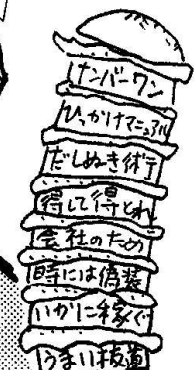 ナンバーワン
ひっかけマニュアル
だしぬき術
得して得とれ
会社のため
時には偽装
いかに稼ぐ
うまい抜道